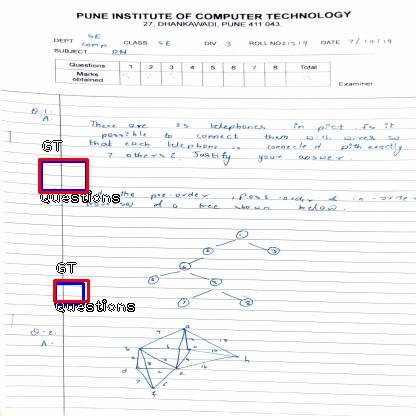 PUNE INSTITUTE OF COMPUTER TECHNOLOGY
27, DHANKAWADI, PUNE 411 043.
DEPT SE comp CLASS SE DIV 3 ROLL NO. 21319 DATE 7/10/19
SUBJECT DM
Questions 1 2 3 4 5 6 7 8 Total
Marks obtained
Examiner
Q.1.
A. There are 25 telephones in pict. Is it
possible to connect them with wires so
that each telephone is connected with exactly
7 others? Justify your answer.
GT
Questions
the pre-order, Post-order & in-order
of a tree shown below.
GT
Questions
Q.2.
A.